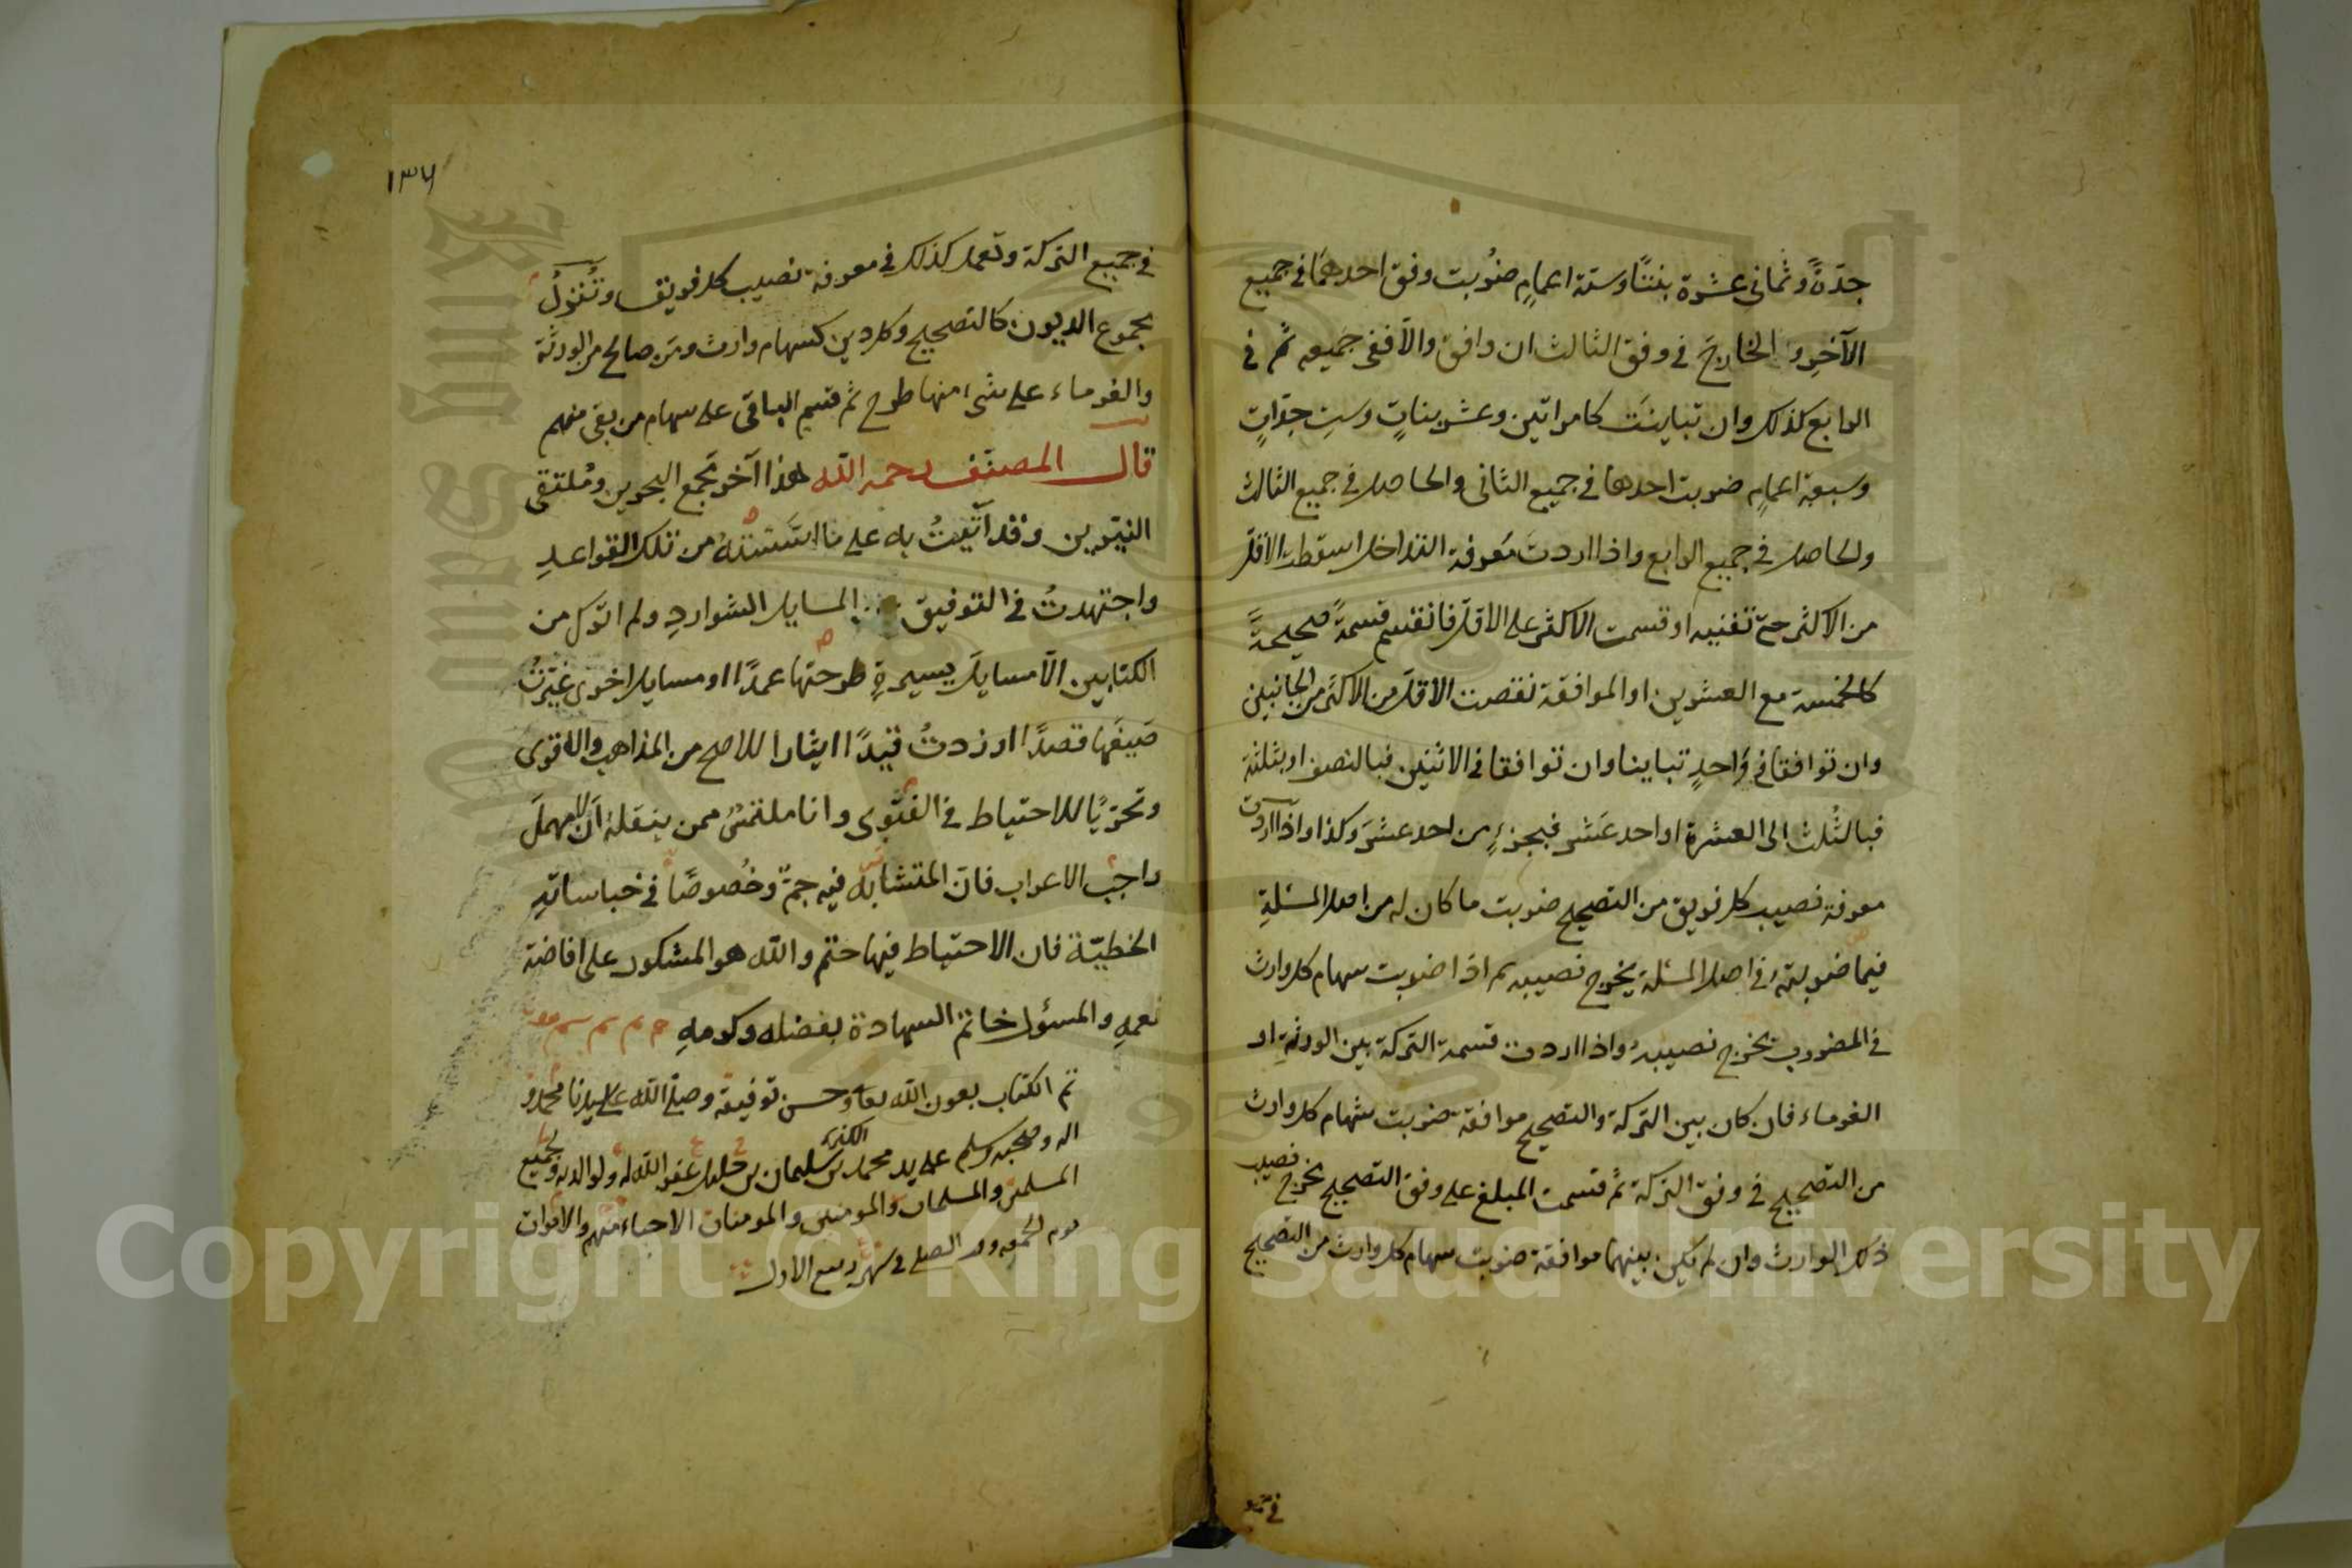 جدّةً وثماني عشرة بنتًا وستة اعمامٍ ضُربت وفق احدهما في جميع
الآخر و الخارج في وفق الثالث ان وافق والّا ففي جميعه ثم في
الرابع كذلك وان تباينت كامراتين وعشر بناتٍ وستِ جدّاتٍ
وسبعة اعمامٍ ضربت احدها في جميع الثاني والحاصل في جميع الثالث
والحاصل في جميع الرابع واذا اردتَ مَعرفة التداخل اسقطت الاقلّ
من الاكثر حتى تفنيه او قسمت الاكثر على الاقلّ فانقسم قسمةً صحيحةً
كالخمسة مع العشرين او الموافقة نقصت الاقلّ من الاكثر من الجانبين
وان توافقا في وَاحدٍ تباينا وان توافقا في الاثنين فبالنصف او بثلثة
فبالثُلث الى العشرة او احد عَشر فبجزءٍ من احد عشَر وكذا واذا اردت
معرفة نصيب كل فريق من التصحيح ضربت ما كان له من اصل المسئلةِ
فيما ضربته في اصل المسئلة يخرج نصيبه ثم اذا ضربت سهام كل وارث
في المضروب يخرج نصيبه واذا اردت قسمة التركة بين الورثةِ او
الغرماء فان كان بين التركة والتصحيح موافقة ضربت سهام كل وارث
من التصحيح في وفق التركة ثم قسمت المبلغ على وفق التصحيح يخرج نصيب
ذلك الوارث وان لم يكن بينهما موافقة ضربت سهام كل وارث من التصحيح
في جميع
١٣٧
في جميع التركة وتعمل كذلك في معرفة نصيب كل فريق وتُنزلُ
مجموع الديون كالتصحيح وكل دين كسهام وارث ومَن صالح من الورثة
والغرماء على شيء منها طرح ثم قسم الباقي على سهام من بقي منهم
قال المصنّف رحمه الله هذا آخر مَجمع البحرين ومُلتقى
النيّرين وقد آتيتُ به على ما اسّستُهُ من تلك القواعدِ
واجتهدتُ في التوفيق المسايل الشواردِ ولم اترك من
الكتابين الّا مسايلَ يسيرةٍ طرحتها عمدًا او مسايل اخرى غيّرتُ
صَيغَها قصدًا او زدتُ قيدًا ايثارا للاصح من المذاهب والاقوى
وتحرّيًا للاحتياط في الفتوى وانا ملتمسٌ ممن ينقله ان لا يهملَ
واجب الاعراب فانّ المتشابه فيه جمّ وخُصوصًا في خباساته
الخطيّة فان الاحتياط فيها حتم والله هو المشكور على افاضة
نعمهِ والمسؤل خاتم السعادة بفضله وكرمهِ
تم الكتاب بعون الله تعالى وحسن توفيقه وصلى الله على سيدنا محمد و
اله وصحبه وسلم على يد محمد بن سليمان بن خليل غفر الله له ولوالديه ولجميع
المسلمين والمسلمات والمومنين والمومنات الاحياء منهم والاموات
يوم الجمعه وقت الضحى في شهر ربيع الاول
Copyright © King Saud University